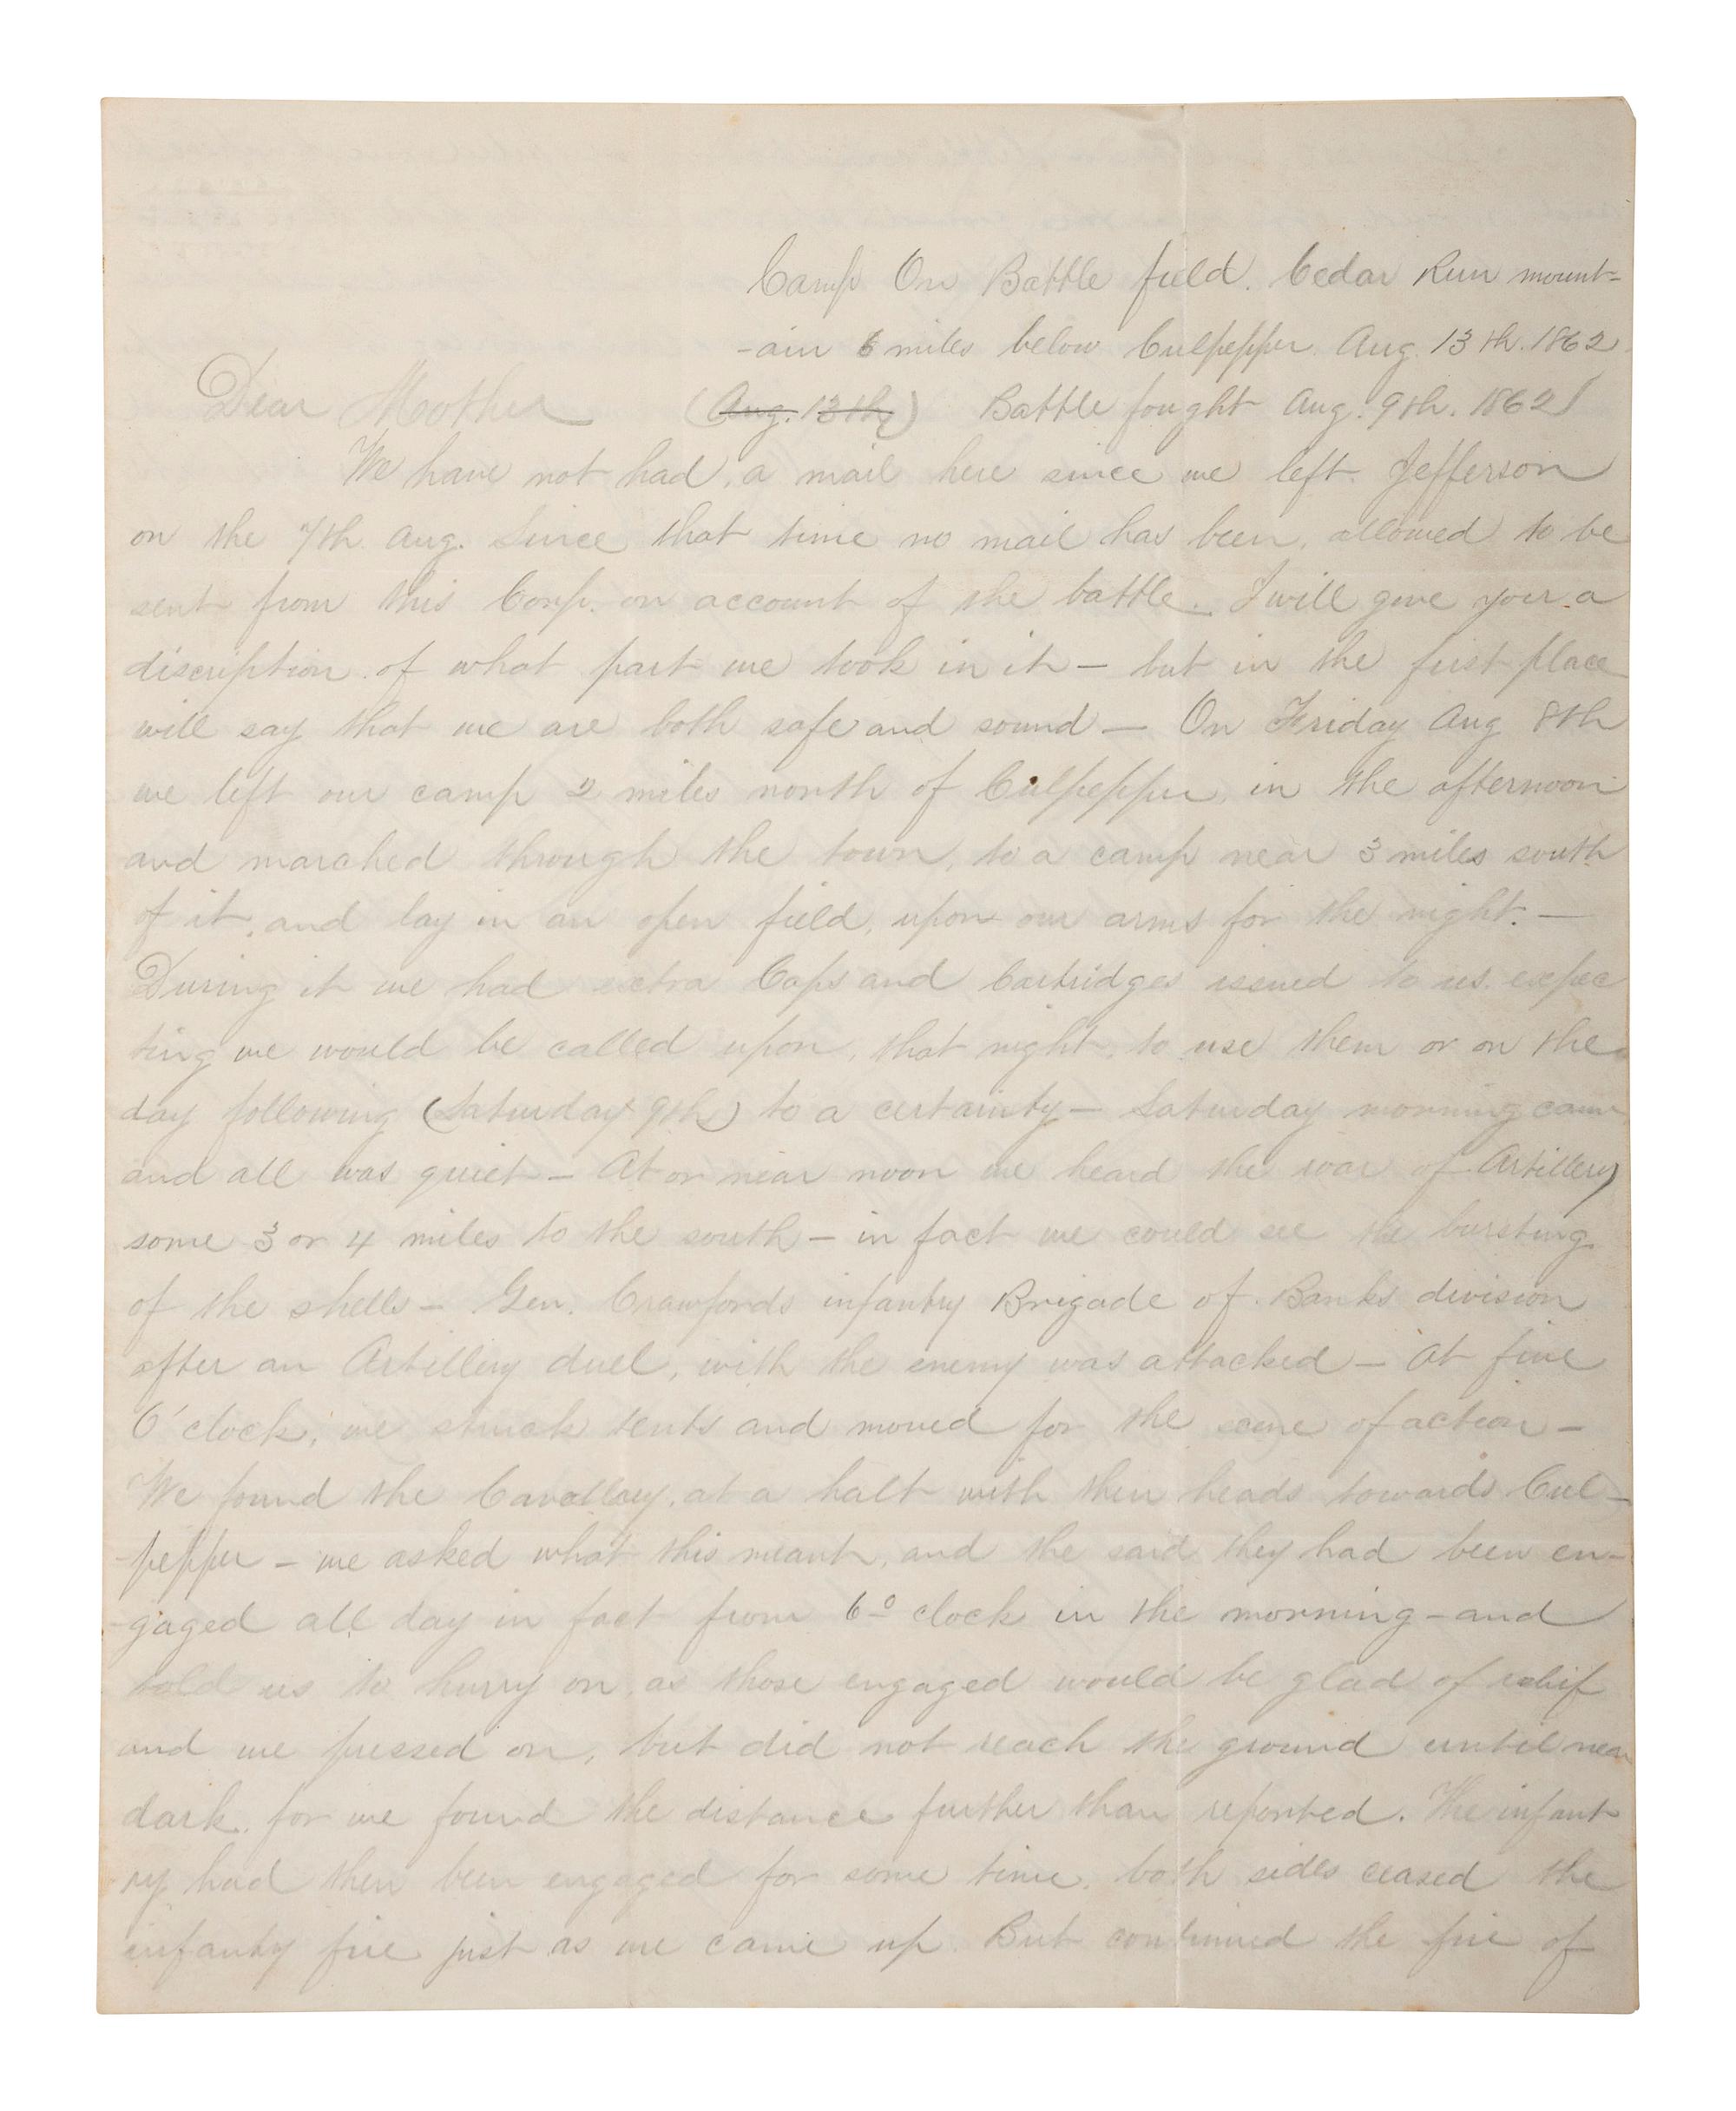 Camp On Battle field. Cedar Run mount-
-ain 6 miles below Culpepper Aug. 13th. 1862
Dear Mother (Aug. 13th) Battle fought Aug. 9th. 1862)
We have not had, a mail here since we left Jefferson
on the 7th Aug. Since that time no mail has been, allowed to be
sent from this Corp. on account of the battle. I will give you a
discription of what part we took in it — but in the first place
will say that we are both safe and sound — On Friday Aug 8th
we left our camp 2 miles north of Culpepper, in the afternoon
and marched through the town, to a camp near 3 miles south
of it, and lay in an open field, upon our arms for the night. —
During it we had extra Caps and Cartridges issued to us. expec
ting we would be called upon, that night, to use them or on the
day following (Saturday 9th) to a certainty — Saturday morning came
and all was quiet — At or near noon we heard the roar of Artillery
some 3 or 4 miles to the south — in fact we could see the bursting
of the shells — Gen. Crawfords infantry Brigade of Banks division
after an Artillery duel, with the enemy was attacked — At five
O'clock, we struck tents and moved for the scene of action —
We found the Cavallary, at a halt with their heads towards Cul-
-pepper — we asked what this meant, and the said they had been en-
-gaged all day in fact from 6º clock in the morning — and
told us to hurry on, as those engaged would be glad of relief
and we pressed on, but did not reach the ground until near
dark. for we found the distance further than reported. The infant
ry had then been engaged for some time. both sides ceased the
infantry fire just as we came up. But continued the fire of